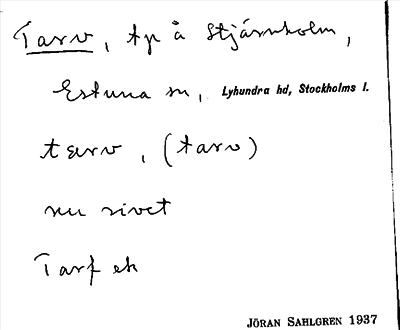 Tarv, tp å Stjärnholm,
Estuna sn, Lyhundra hd, Stockholms l.
tarv, (tarv)
nu rivet
Tarf ek
JÖRAN SAHLGREN 1937